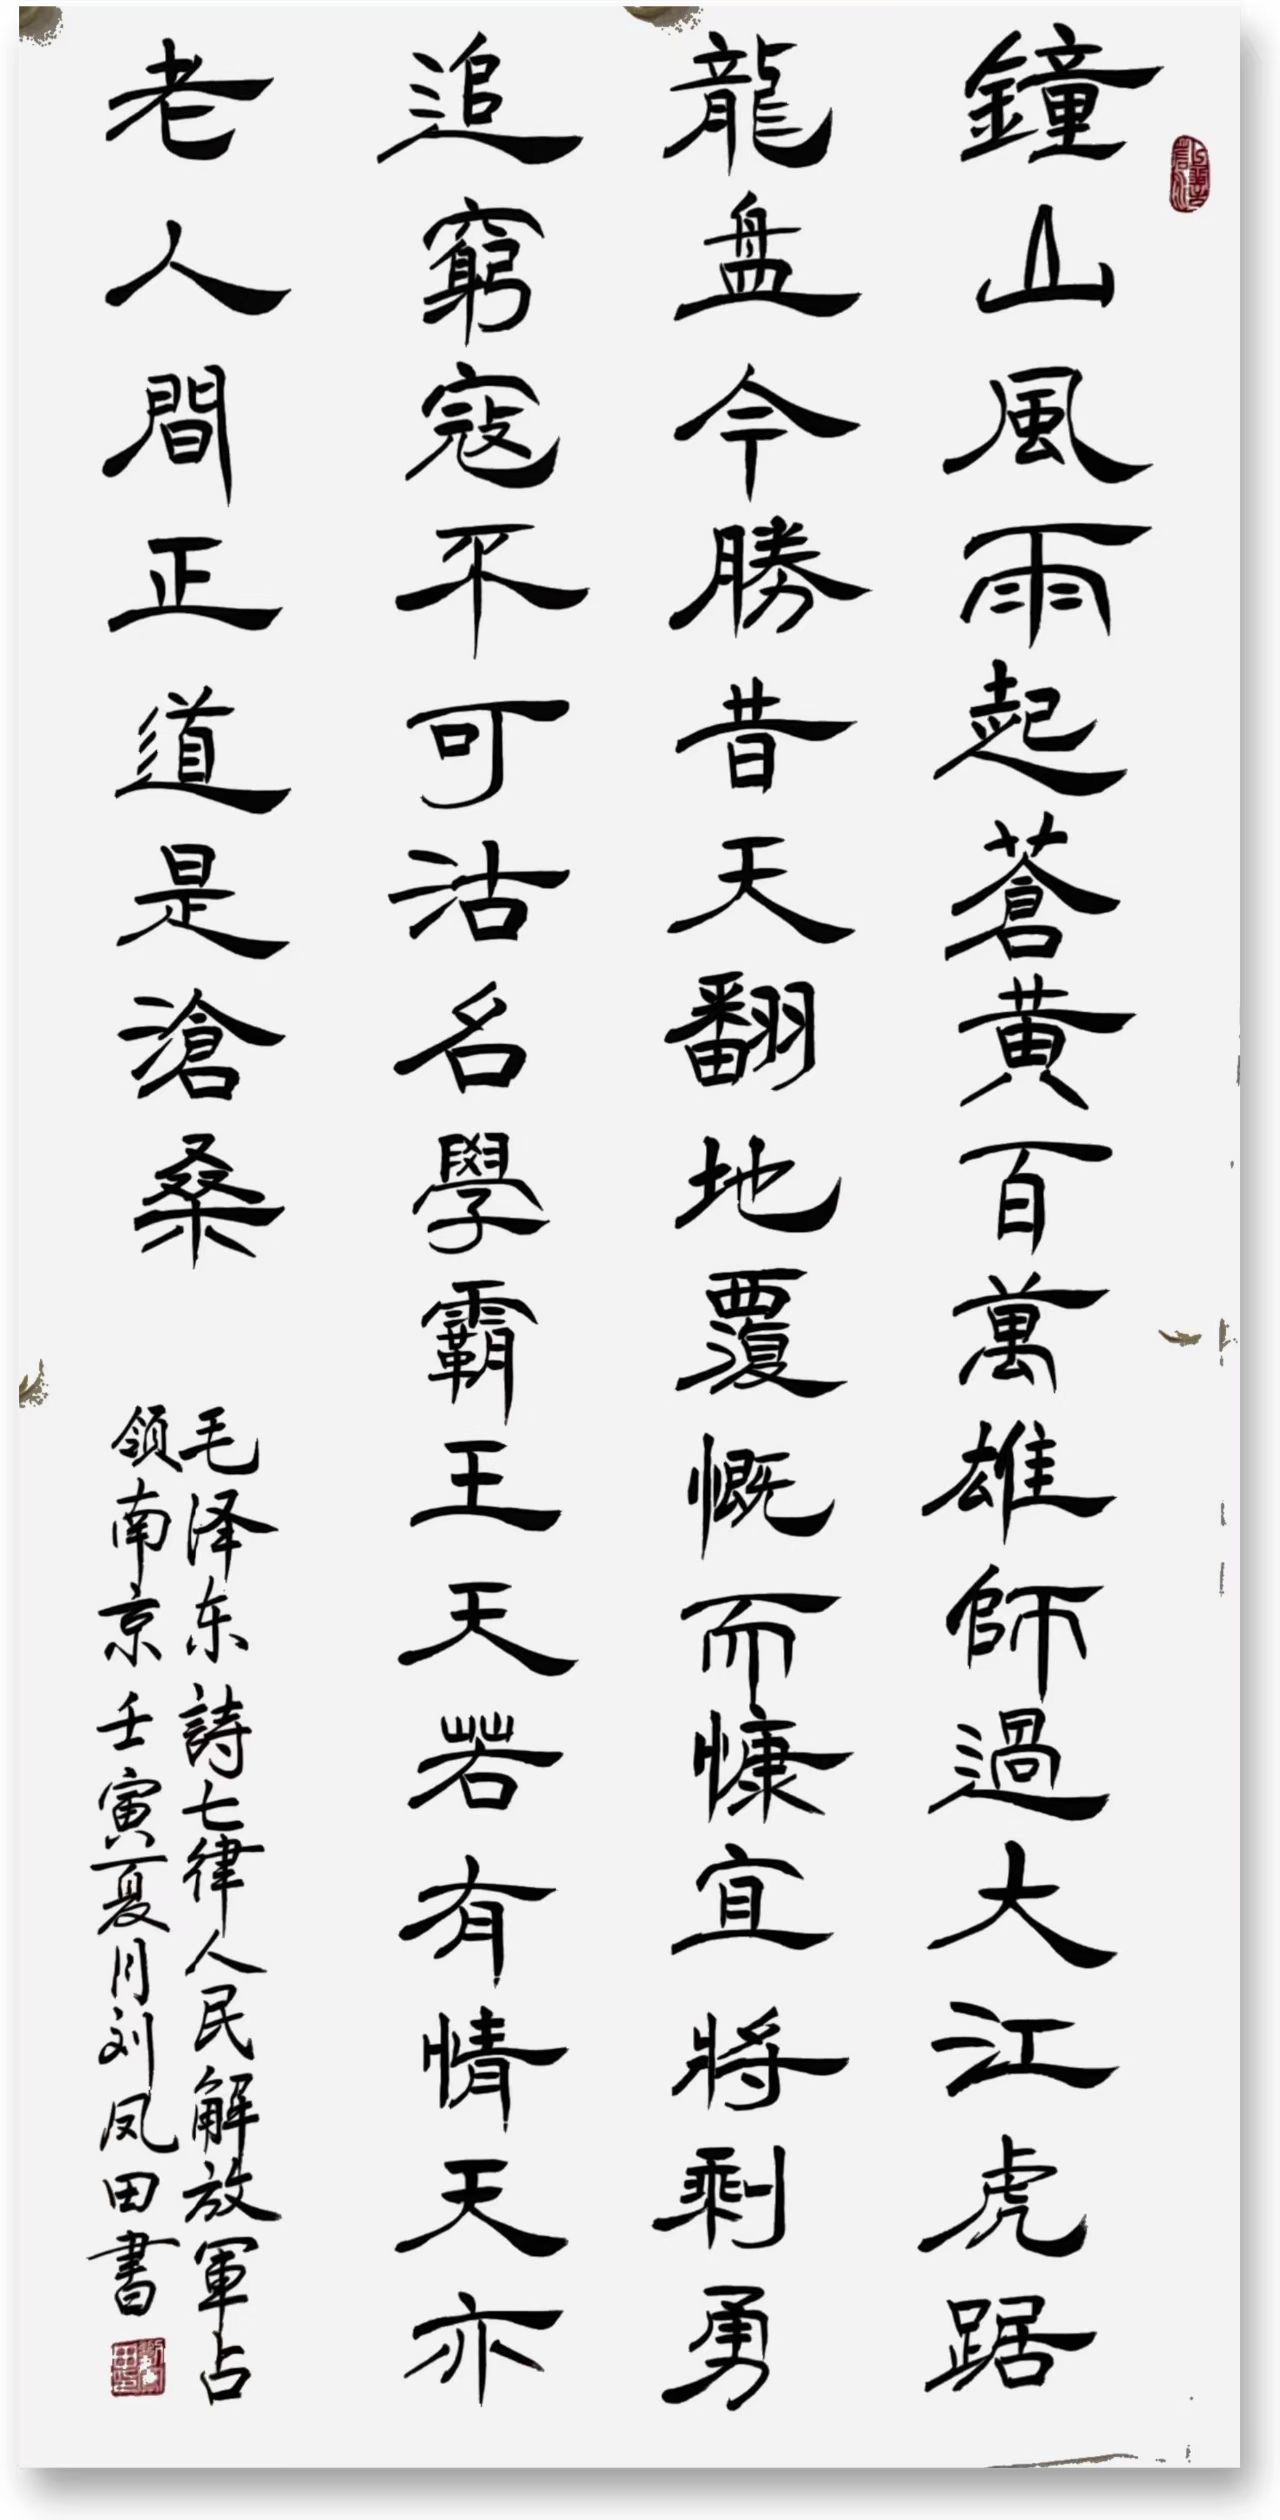 鐘山風雨起蒼黃百萬雄師過大江虎踞
龍盘今勝昔天翻地覆慨而慷宜將剩勇
追窮寇不可沽名學霸王天若有情天亦
老人間正道是滄桑
毛泽东詩七律人民解放軍占
領南京壬寅夏月刘凤田書